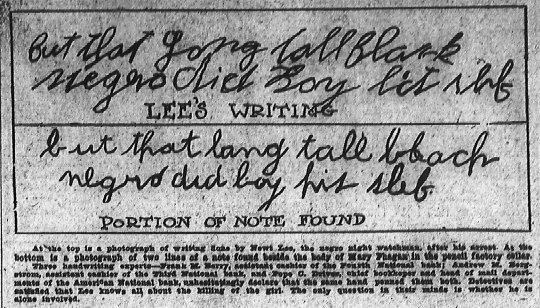 but that long tall black
negro did boy hit slef
LEE'S WRITING
but that long tall bleach
negro did boy hit sleb
PORTION OF NOTE FOUND
At the top is a photograph of writing done by Newt Lee, the negro night watchman, after his arrest. At the
bottom is a photograph of two lines of a note found beside the body of Mary Phagan in the pencil factory cellar.
Three handwriting experts—Frank M. Berry, assistant cashier of the Fourth National bank; Andrew M. Berg-
strom, assistant cashier of the Third National bank, and Pope C. Driver, chief bookkeeper and head of mail depart-
ments of the American National bank, unhesitatingly declare that the same hand penned them both. Detectives are
satisfied that Lee knows all about the killing of the girl. The only question in their minds is whether he is
alone involved.